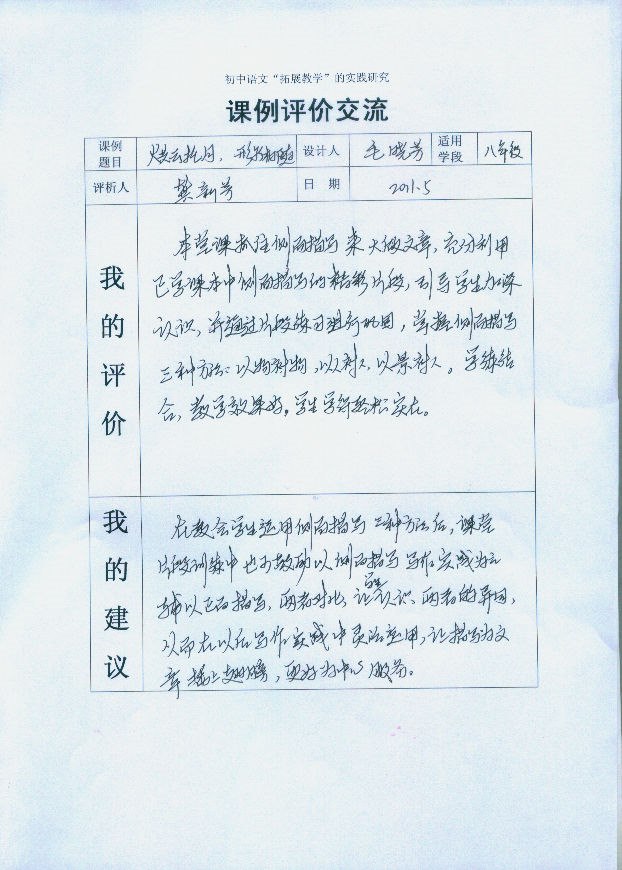 初中语文“拓展教学”的实践研究
课例评价交流
课例题目 烘云托月，形象 设计人 毛晓芳 适用学段 八年级
评析人 樊新芳 日期 2011.5
我的评价
本堂课抓住侧面描写来大做文章，充分利用
已学课本中侧面描写的精彩片段，引导学生加深
认识，并通过片段练习进行巩固，掌握侧面描写
三种方法：以物衬物，以人衬人，以景衬人。学练结
合，教学效果好。学生学得轻松实在。
我的建议
在教会学生运用侧面描写三种方法后，课堂
片段训练中也可鼓励以侧面描写写作实践为主
辅以正面描写，两者对比，让学生认识两者的异同，
从而在以后写作实践中灵活运用，让描写为文
章插上翅膀，更好为中心服务。